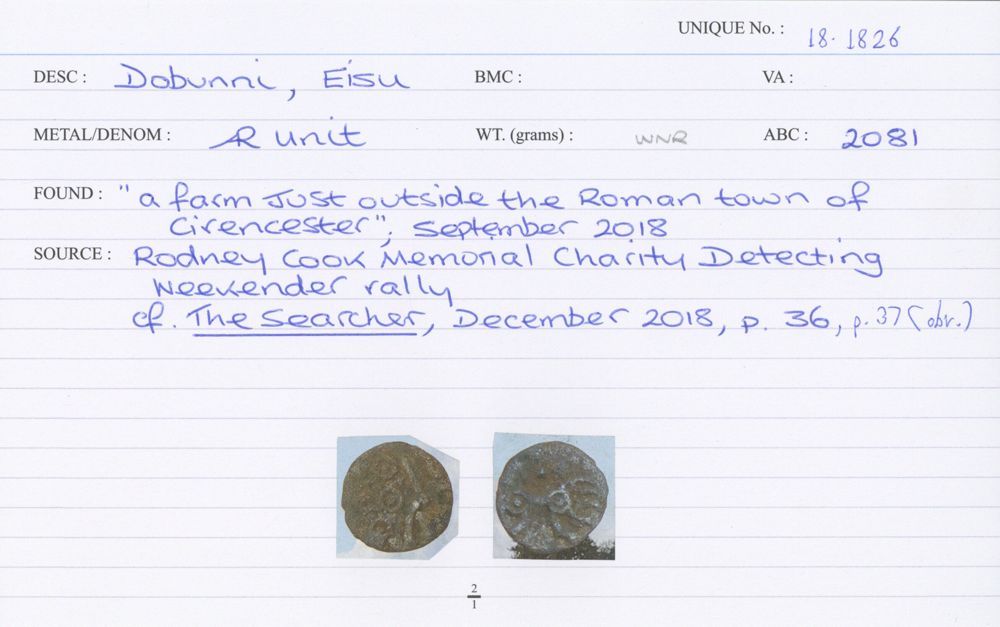 UNIQUE No. : 18.1826
DESC : Dobunni, Eisu BMC : VA :
METAL/DENOM : AR unit WT. (grams) : WNR ABC : 2081
FOUND : "a farm just outside the Roman town of
Cirencester", September 2018
SOURCE : Rodney Cook Memorial Charity Detecting
Weekender rally
cf. The Searcher, December 2018, p. 36, p. 37 (obv.)
2
1